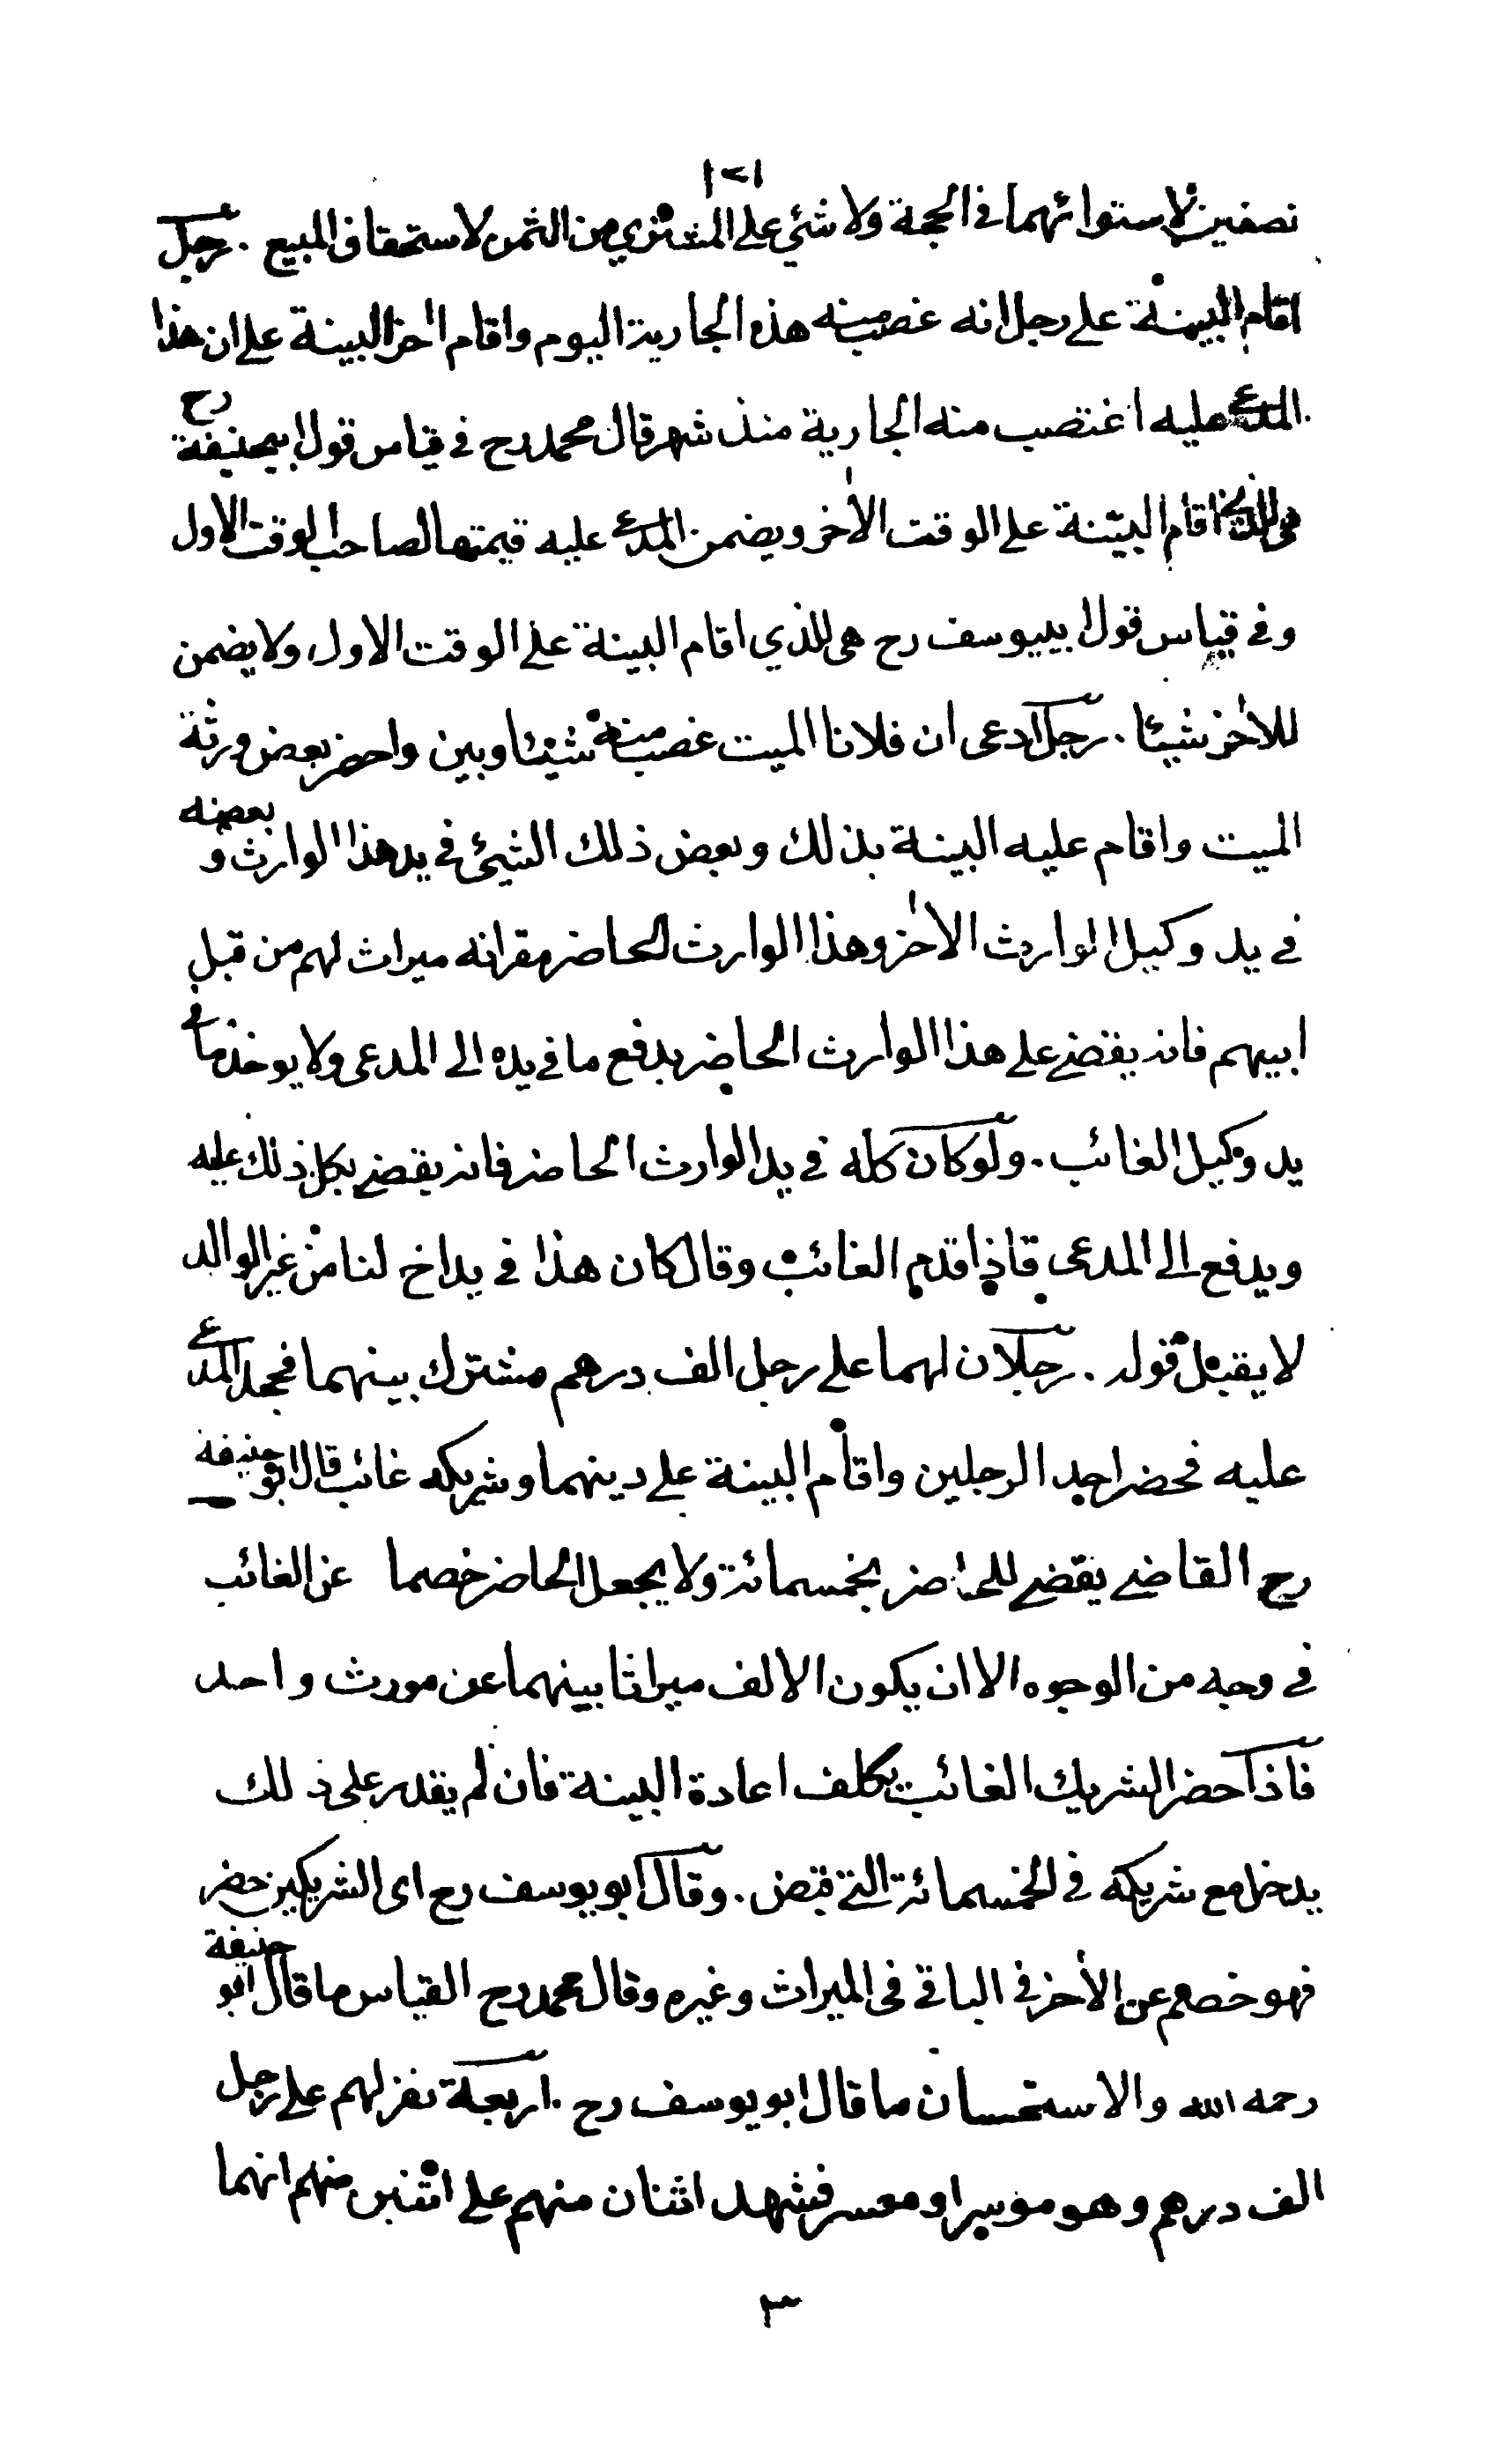 ١٢١
نصفين لاستوائهما في الحجة ولا شئي على المشتري من الثمن لاستحقاق المبيع . رجل
اقام البينة على رجل انه غصب منه هذه الجارية اليوم واقام اٰخر البينة على ان هذا
المدعى عليه اغتصب منه الجارية منذ شهر قال محمد رح في قياس قول ابيحنيفة رح
هي للذي اقام البيّنة على الوقت الاٰخر ويضمن المدعى عليه قيمتها لصاحب الوقت الاول
وفي قياس قول ابييوسف رح هى للذي اقام البينة على الوقت الاول ولا يضمن
للاٰخر شيئا . رجل ادعى ان فلانا الميت غصب منه شيئا وبين واحضر بعض ورثة
الميت واقام عليه البينة بذلك وبعض ذلك الشيئ في يد هذا الوارث و بعضه
في يد وكيل الوارث الاٰخر وهذا الوارث الحاضر مقر انه ميراث لهم من قبل
ابيهم فانه يقضي على هذا الوارث الحاضر بدفع ما في يده الى المدعى ولا يوخذ ما في
يد وكيل الغائب . ولو كان كله في يد الوارث الحاضر فانه يقضي بكل ذلك عليه
ويدفع الى المدعى فاذا قدم الغائب وقال كان هذا في يد اخ لنا من غير الوالد
لا يقبل قوله . رجلان لهما على رجل الف درهم مشترك بينهما فجحد المدعى
عليه فحضر احد الرجلين واقام البينة على دينهما وشريكه غائب قال ابو حنيفة
رح القاضي يقضي للحاضر بخمسمائة ولا يجعل الحاضر خصما عن الغائب
في وجه من الوجوه الا ان يكون الالف ميراثا بينهما عن مورث واحد
فاذا حضر الشريك الغائب يكلف اعادة البينة فان لم يقدر على ذلك
يدخل مع شريكه في الخمسمائة التي قبض . وقال ابو يوسف رح اى الشريكين حضر
فهو خصم عن الاٰخر في الباقي في الميراث وغيره وقال محمد رح القياس ما قال ابو حنيفة
رحمه الله والاستحسان ما قال ابو يوسف رح . اربعة نفر لهم على رجل
الف درهم وهو موسر او معسر فشهد اثنان منهم على اثنين منهم انهما
٣